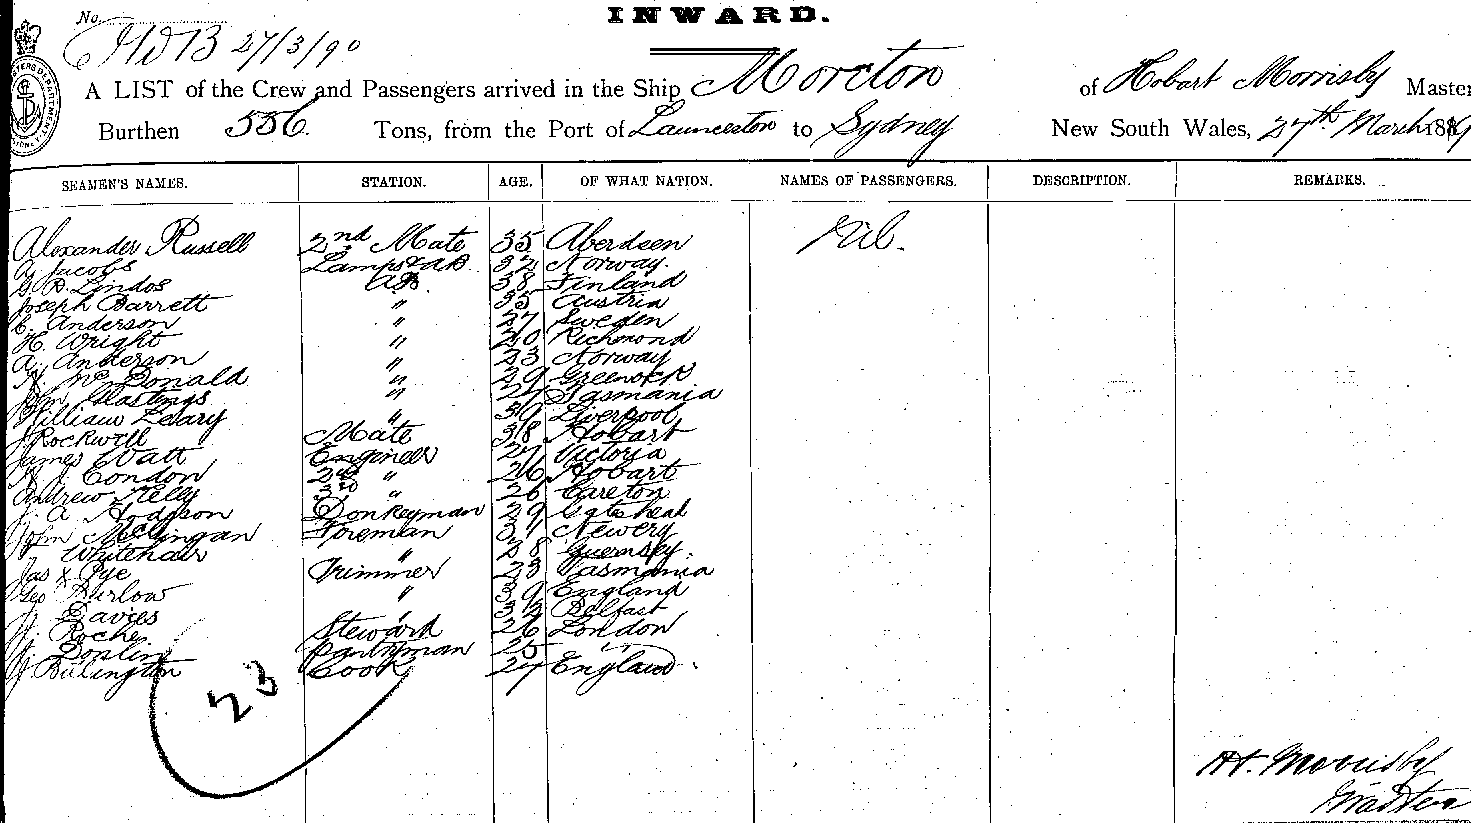 INWARD.
No.
HDB 27/3/90
A LIST of the Crew and Passengers arrived in the Ship Moreton of Hobart Morrisby Master
Burthen 556. Tons, from the Port of Launceston to Sydney New South Wales, 27th March 188
SEAMEN'S NAMES. STATION. AGE. OF WHAT NATION. NAMES OF PASSENGERS. DESCRIPTION. REMARKS.
Alexander Russell 2nd Mate 35 Aberdeen Nil.
A Jacobs Lamps & AB 32 Norway.
G. B. Lindos AB. 38 Finland
Joseph Barrett " 35 Austria
C. Anderson " 27 Sweden
H. Wright " 20 Richmond
A. Anderson " 23 Norway
Mc Donald " 29 Greenock
John Hastings " 27 Tasmania
William Leary " 39 Liverpool
J Rockwell Mate 38 Hobart
James Watt Engineer 27 Victoria
Condon 2nd " 26 Hobart
Andrew Kelly 3rd " 26 Careton
J. A Hodgson Donkeyman 29 Gateshead
John McLingan Foreman 37 Newery
Whitehair " 28 Guernsey.
Jas x Pye Trimmer 23 Tasmania
Geo Burlow " 39 England
Davies 32 Belfast
Roche Steward 26 London
Doslin Pantryman 25 "
Billington Cook 27 England
23
H. Morrisby
Master